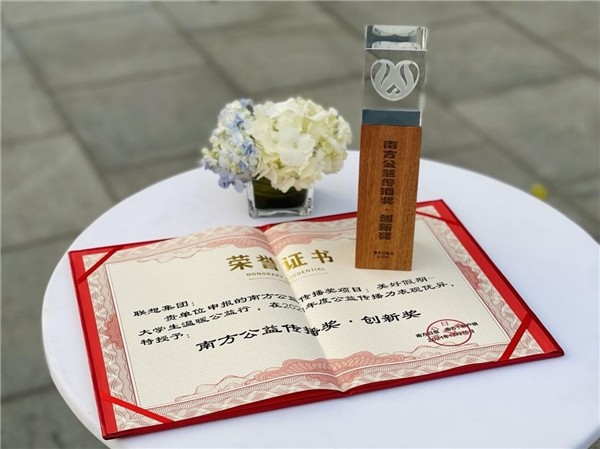 荣誉证书
HONORARY CREDENTIAL
联想集团：
贵单位申报的南方公益传播奖项目：美好假期
大学生温暖公益行，在202 年度公益传播力表现优异，
特授予：
南方公益传播奖·创新奖
南方公益传播奖·创新奖